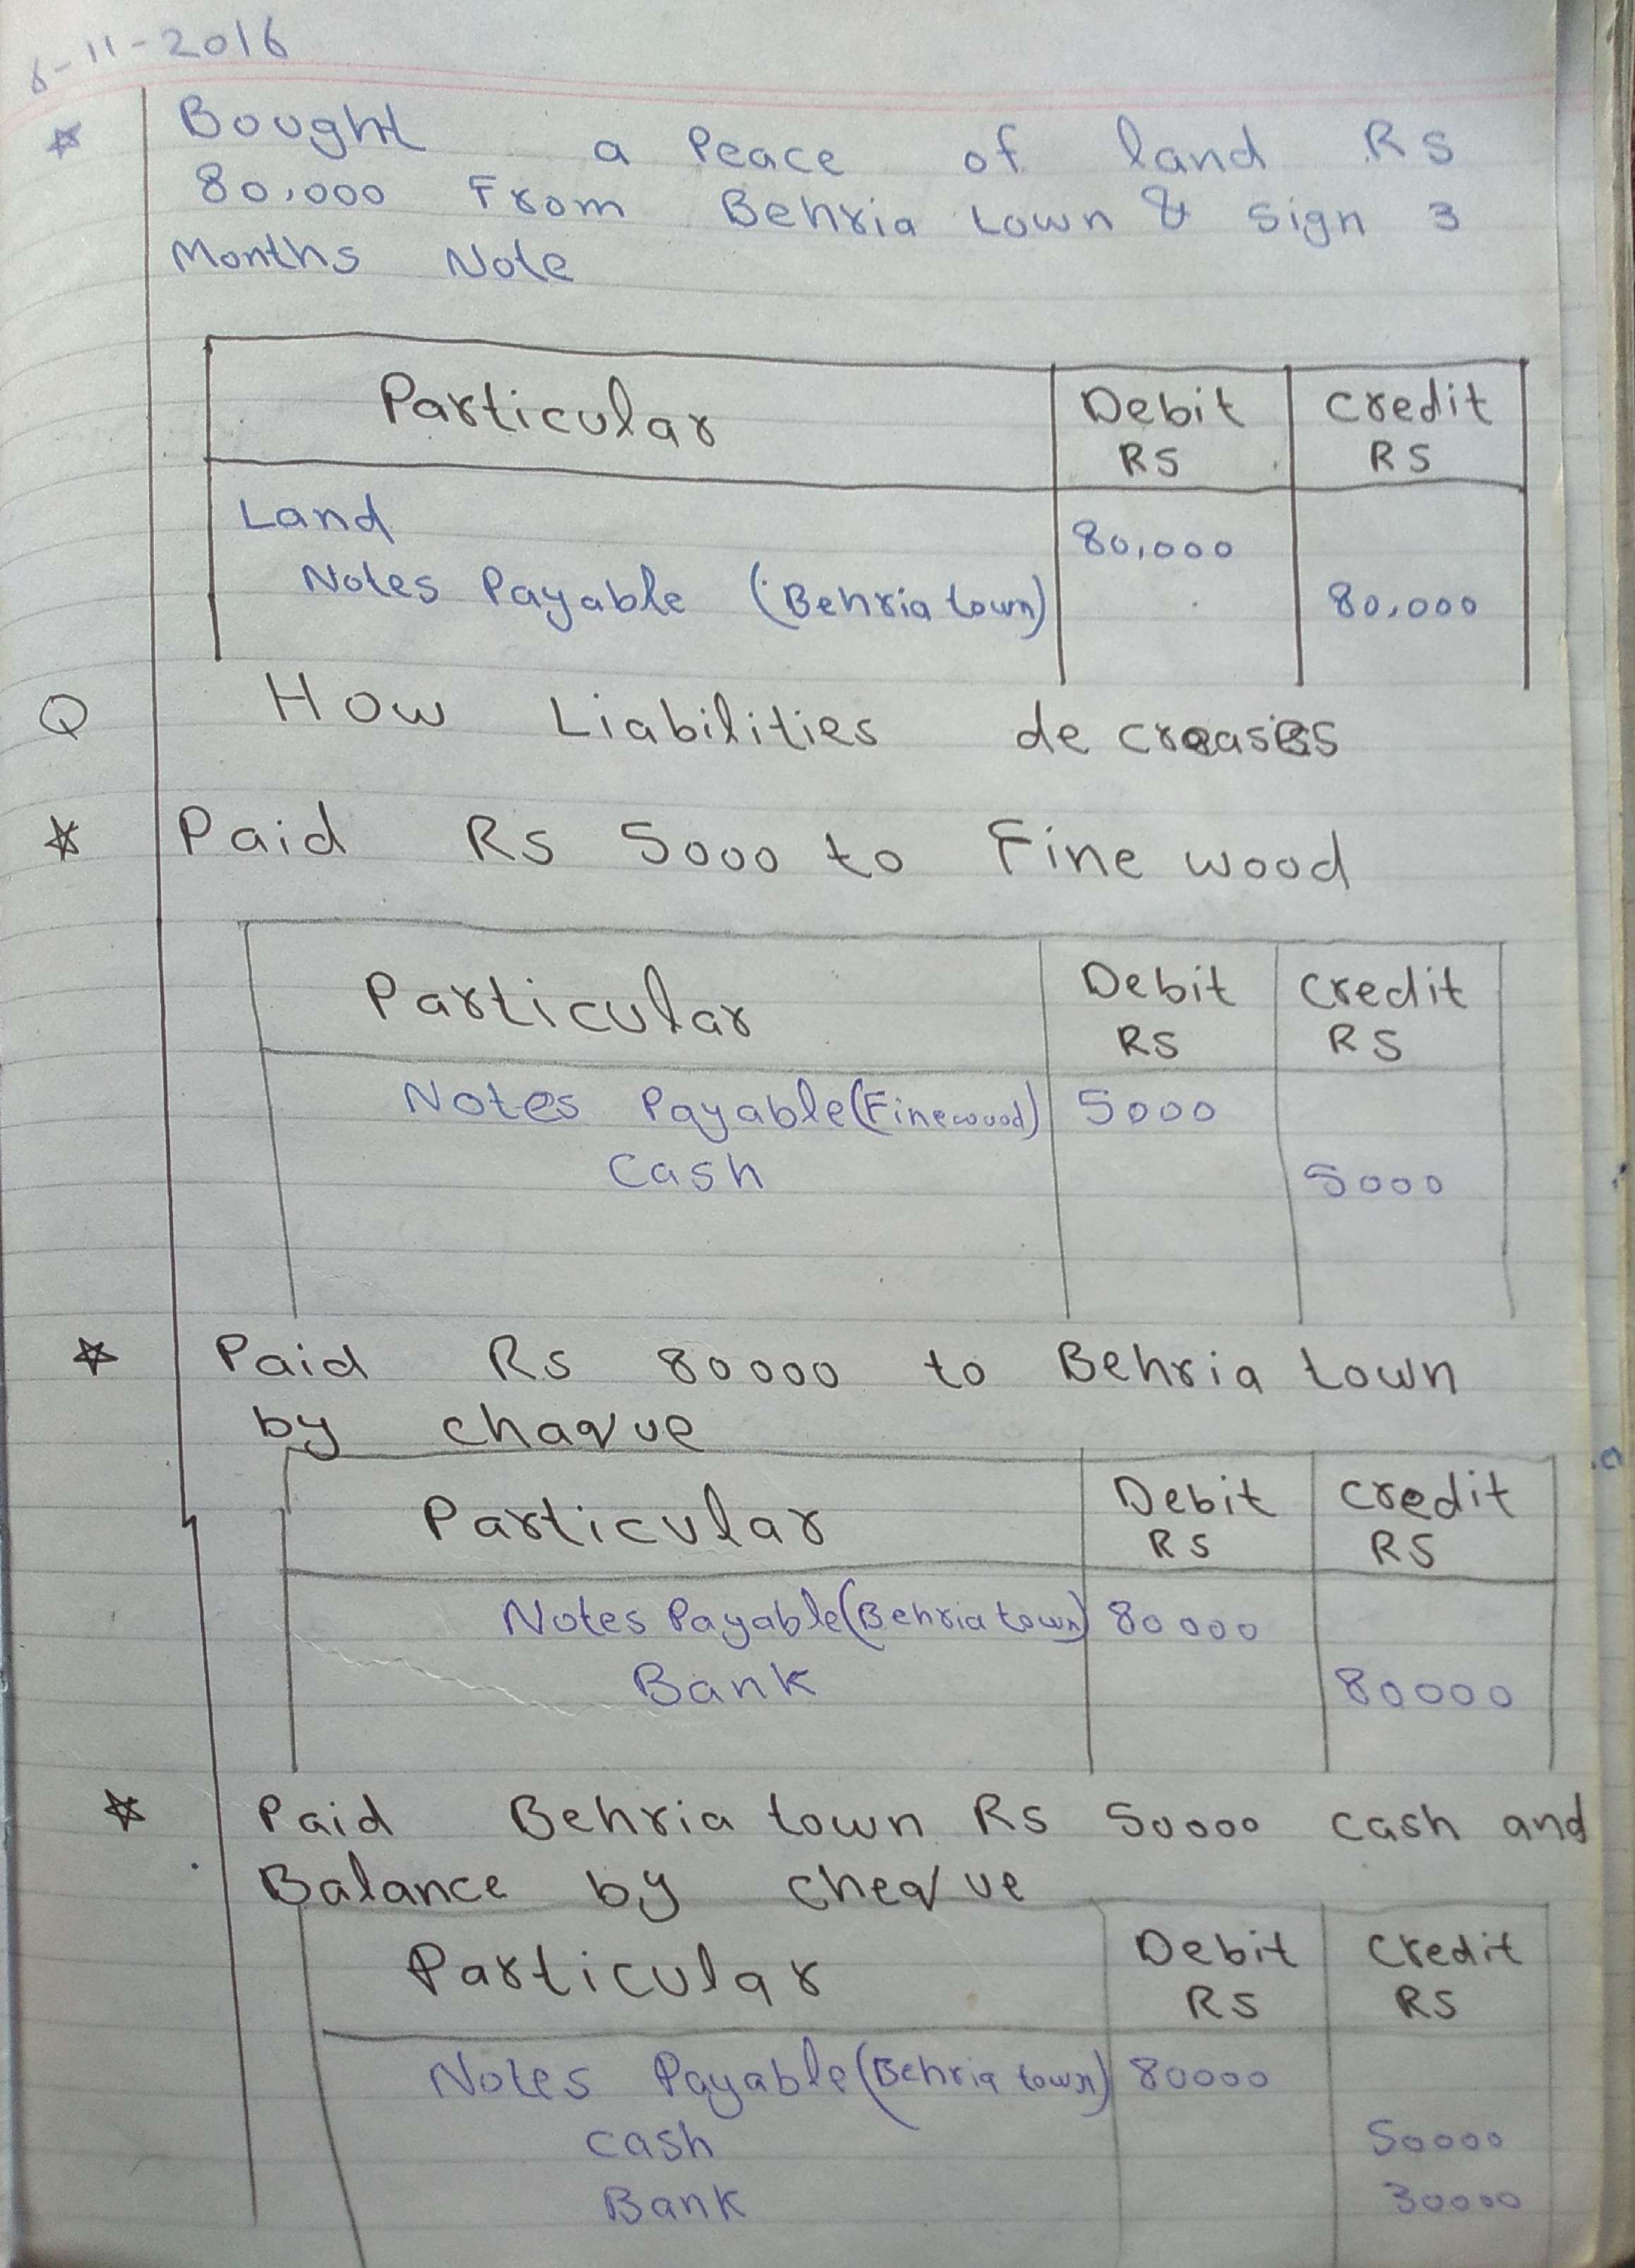 6-11-2016
Bought a Peace of land RS
80,000 From Behria town & Sign 3
Months Note
Particular Debit RS Credit RS
Land 80,000
Notes Payable (Behria town) 80,000
Q How Liabilities decreases
Paid Rs 5000 to Fine wood
Particular Debit RS Credit RS
Notes Payable (Finewood) 5000
Cash 5000
Paid Rs 80000 to Behria town
by chaque
Particular Debit RS Credit RS
Notes Payable (Behria town) 80000
Bank 80000
Paid Behria town Rs 50000 cash and
Balance by cheque
Particular Debit RS Credit RS
Notes Payable (Behria town) 80000
cash 50000
Bank 30000